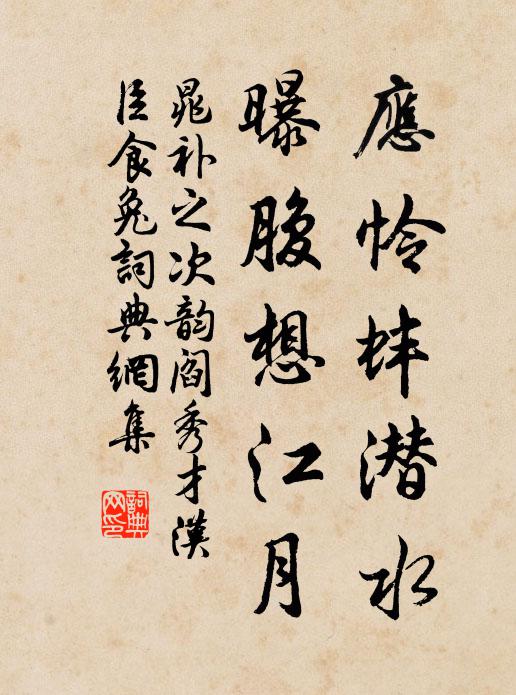 應怜蚌潜水
曝腹想江月
晁补之次韵阎秀才漢
臣食兔詞典網集
詞典
网印